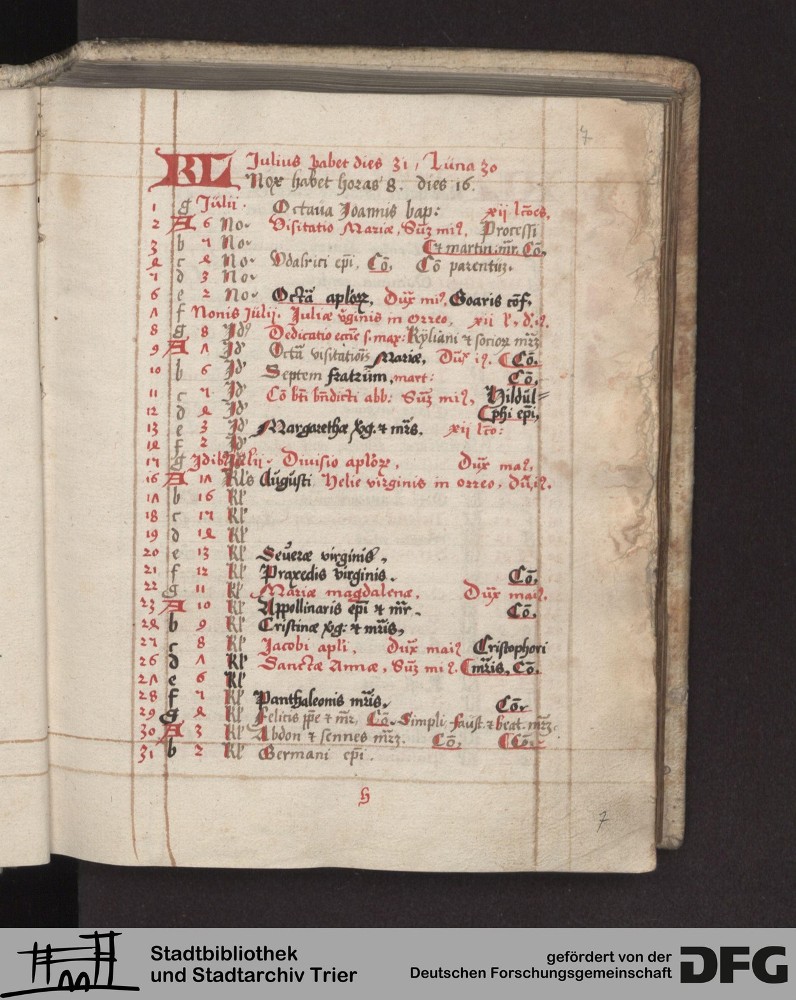 7
KL Julius habet dies 31, Luna 30
Nox habet horas 8. dies 16.
1 g Julii. Octaua Joannis bap: xii lcoēs.
2 A 6 No. Visitatio Mariæ, Sūz mi9. Processi
3 b 5 No. Et martin: mr. Cō.
4 c 4 No. Vdalrici epi, Cō. Cō parentūz.
5 d 3 No.
6 e 2 No. Octā aplorz, Dūx mi9. Goaris cōf.
7 f Nonis Julii. Juliæ virginis in Orreo, xii l', d.i9.
8 g 8 Jd9 Dedicatio eccīe s. max: Kyliani et socior mrz
9 A 7 Jd9 Octā visitatiōis Mariæ, Dūx i9. Cō.
10 b 6 Jd9 Septem fratrūm, mart: Cō.
11 c 5 Jd9 Cō bti bndicti abb: Sūz mi9, Hildūl=
12 d 4 Jd9 phi epi,
13 e 3 Jd9 Margarethæ Xg. et mrīs. xii lco:
14 f 2 Jd9
15 g Jdib9 Julii. Diuisio aplorz, Dūx ma9,
16 A 17 Kl's Augusti Helie virginis in orreo, dū.i9.
17 b 16 Kl'
18 c 15 Kl'
19 d 14 Kl'
20 e 13 Kl' Seueræ virginis,
21 f 12 Kl' Praxedis virginis. Cō,
22 g 11 Kl' Mariæ magdalenæ, Dūx mai9.
23 A 10 Kl' Appollinaris epi et mr. Cō,
24 b 9 Kl' Cristinæ Xg: et mrīs,
25 c 8 Kl' Jacobi apli, Dūx mai9 Cristophori
26 d 7 Kl' Sanctæ Annæ, Sūz mi9. mrīs, Cō.
27 e 6 Kl'
28 f 5 Kl' Panthaleonis mrīs, Cō.
29 g 4 Kl' Felicis ppe et mr, Cō. Simpli. faust. et beat. mrz.
30 A 3 Kl' Abdon et sennes mrz. Cō, Cō.
31 b 2 Kl' Germani epi.
h
7
Stadtbibliothek
und Stadtarchiv Trier
gefördert von der
Deutschen Forschungsgemeinschaft
DFG